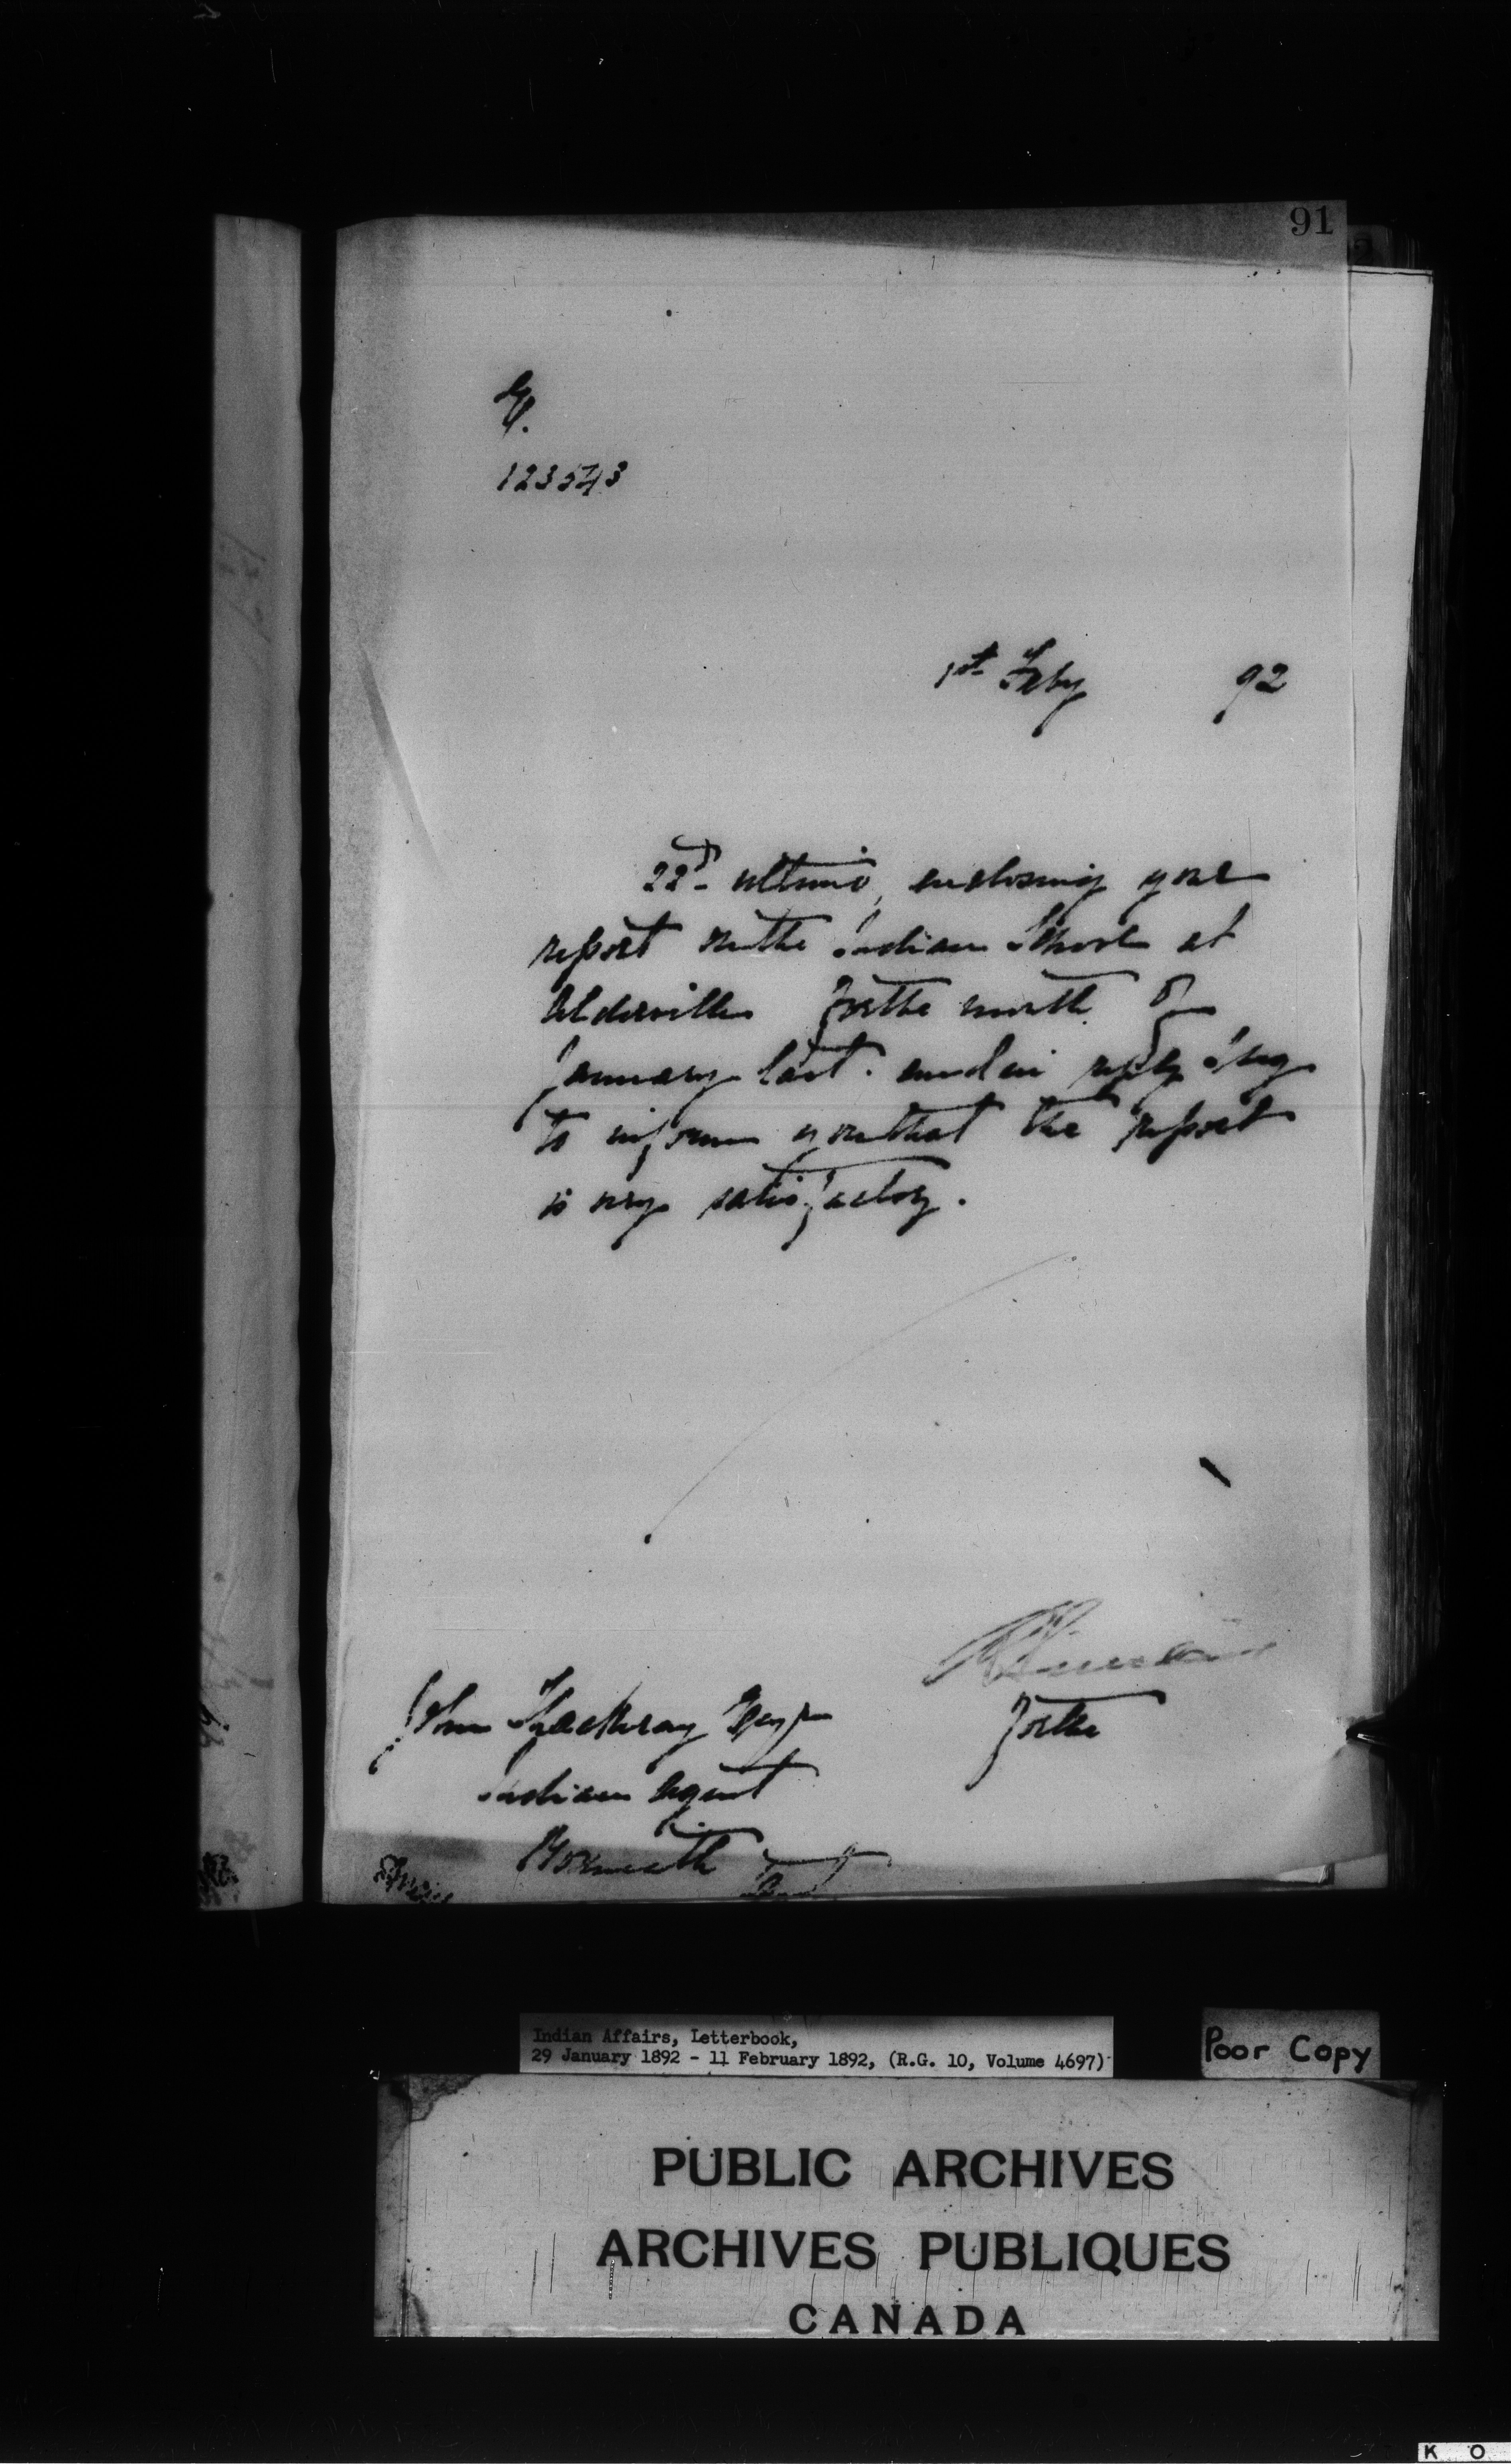 91
123543
1st Feby 92
22d ultimo, enclosing your
report on the Indian School at
Alderville for the month of
January last. and in reply I beg
to inform you that the report
is very satisfactory.
John Thackeray Esqr
for the
Indian Agent
Roseneath
Ont
Indian Affairs, Letterbook,
29 January 1892 - 11 February 1892, (R.G. 10, Volume 4697)
Poor Copy
PUBLIC ARCHIVES
ARCHIVES PUBLIQUES
CANADA
K O